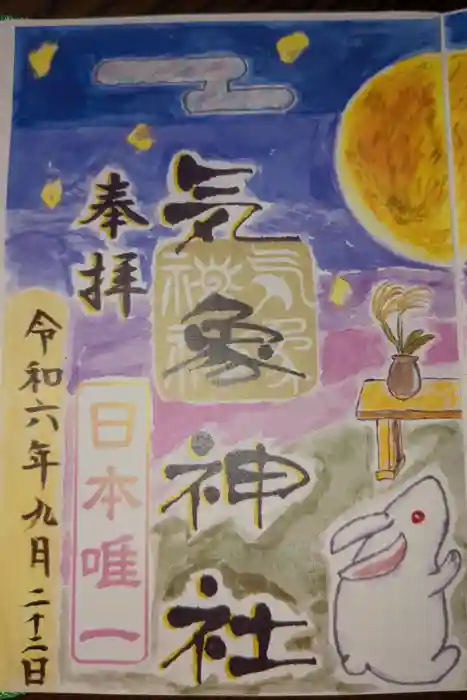 気象神社
奉拝
日本唯一
令和六年九月二十二日
気象
神社